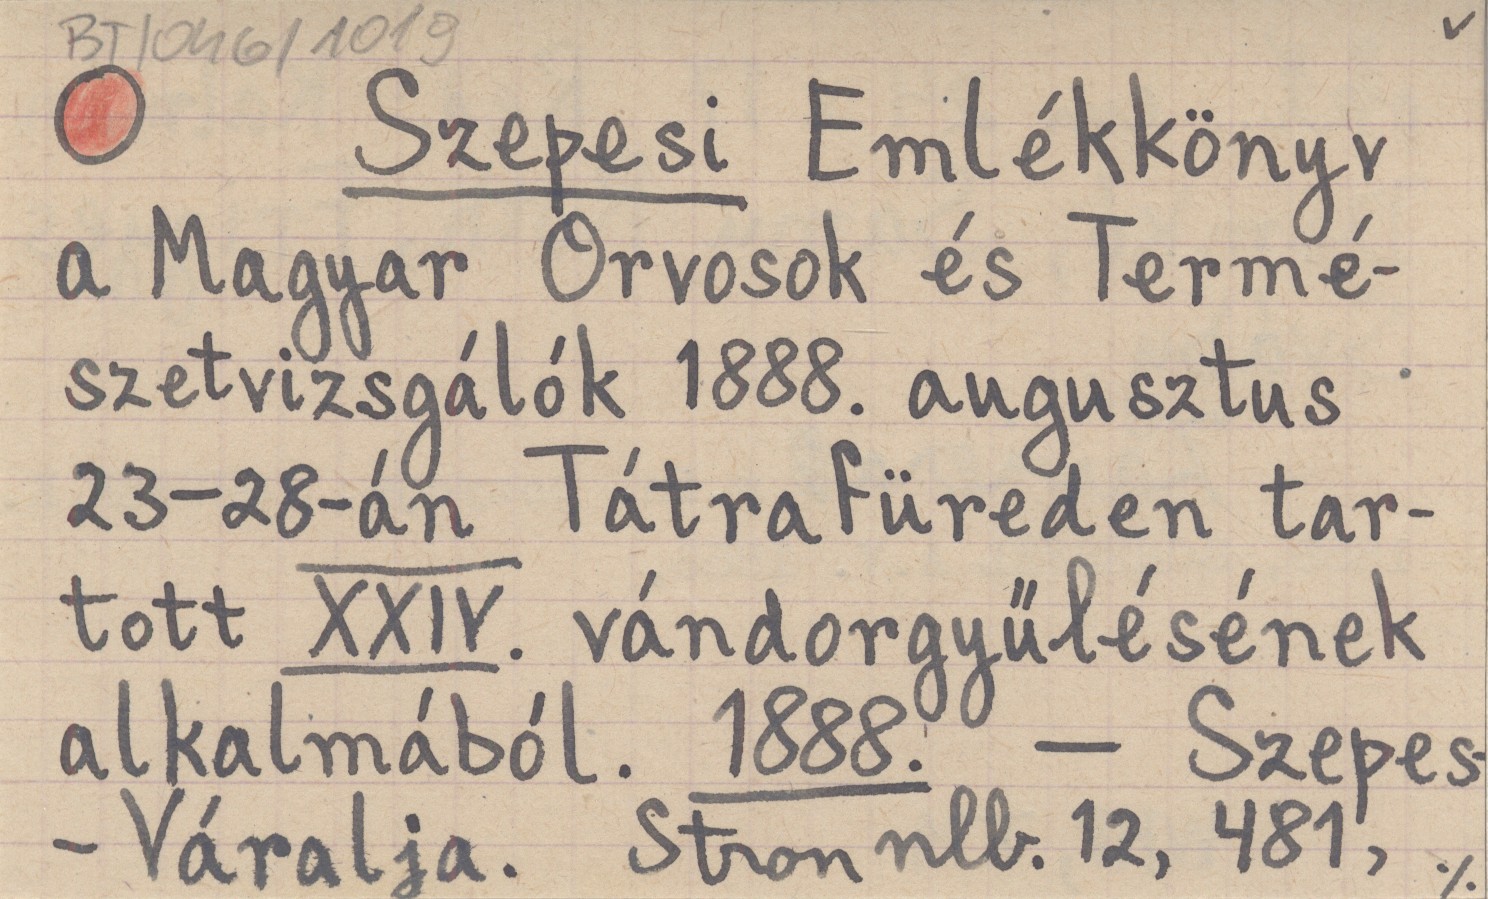 BT/046/1019
Szepesi Emlékkönyv
a Magyar Orvosok és Termé-
szetvizsgálók 1888. augusztus
23-28-án Tátrafüreden tar-
tott XXIV. vándorgyűlésének
alkalmából. 1888. — Szepes-
-Váralja. Stron nlb. 12, 481, ./.